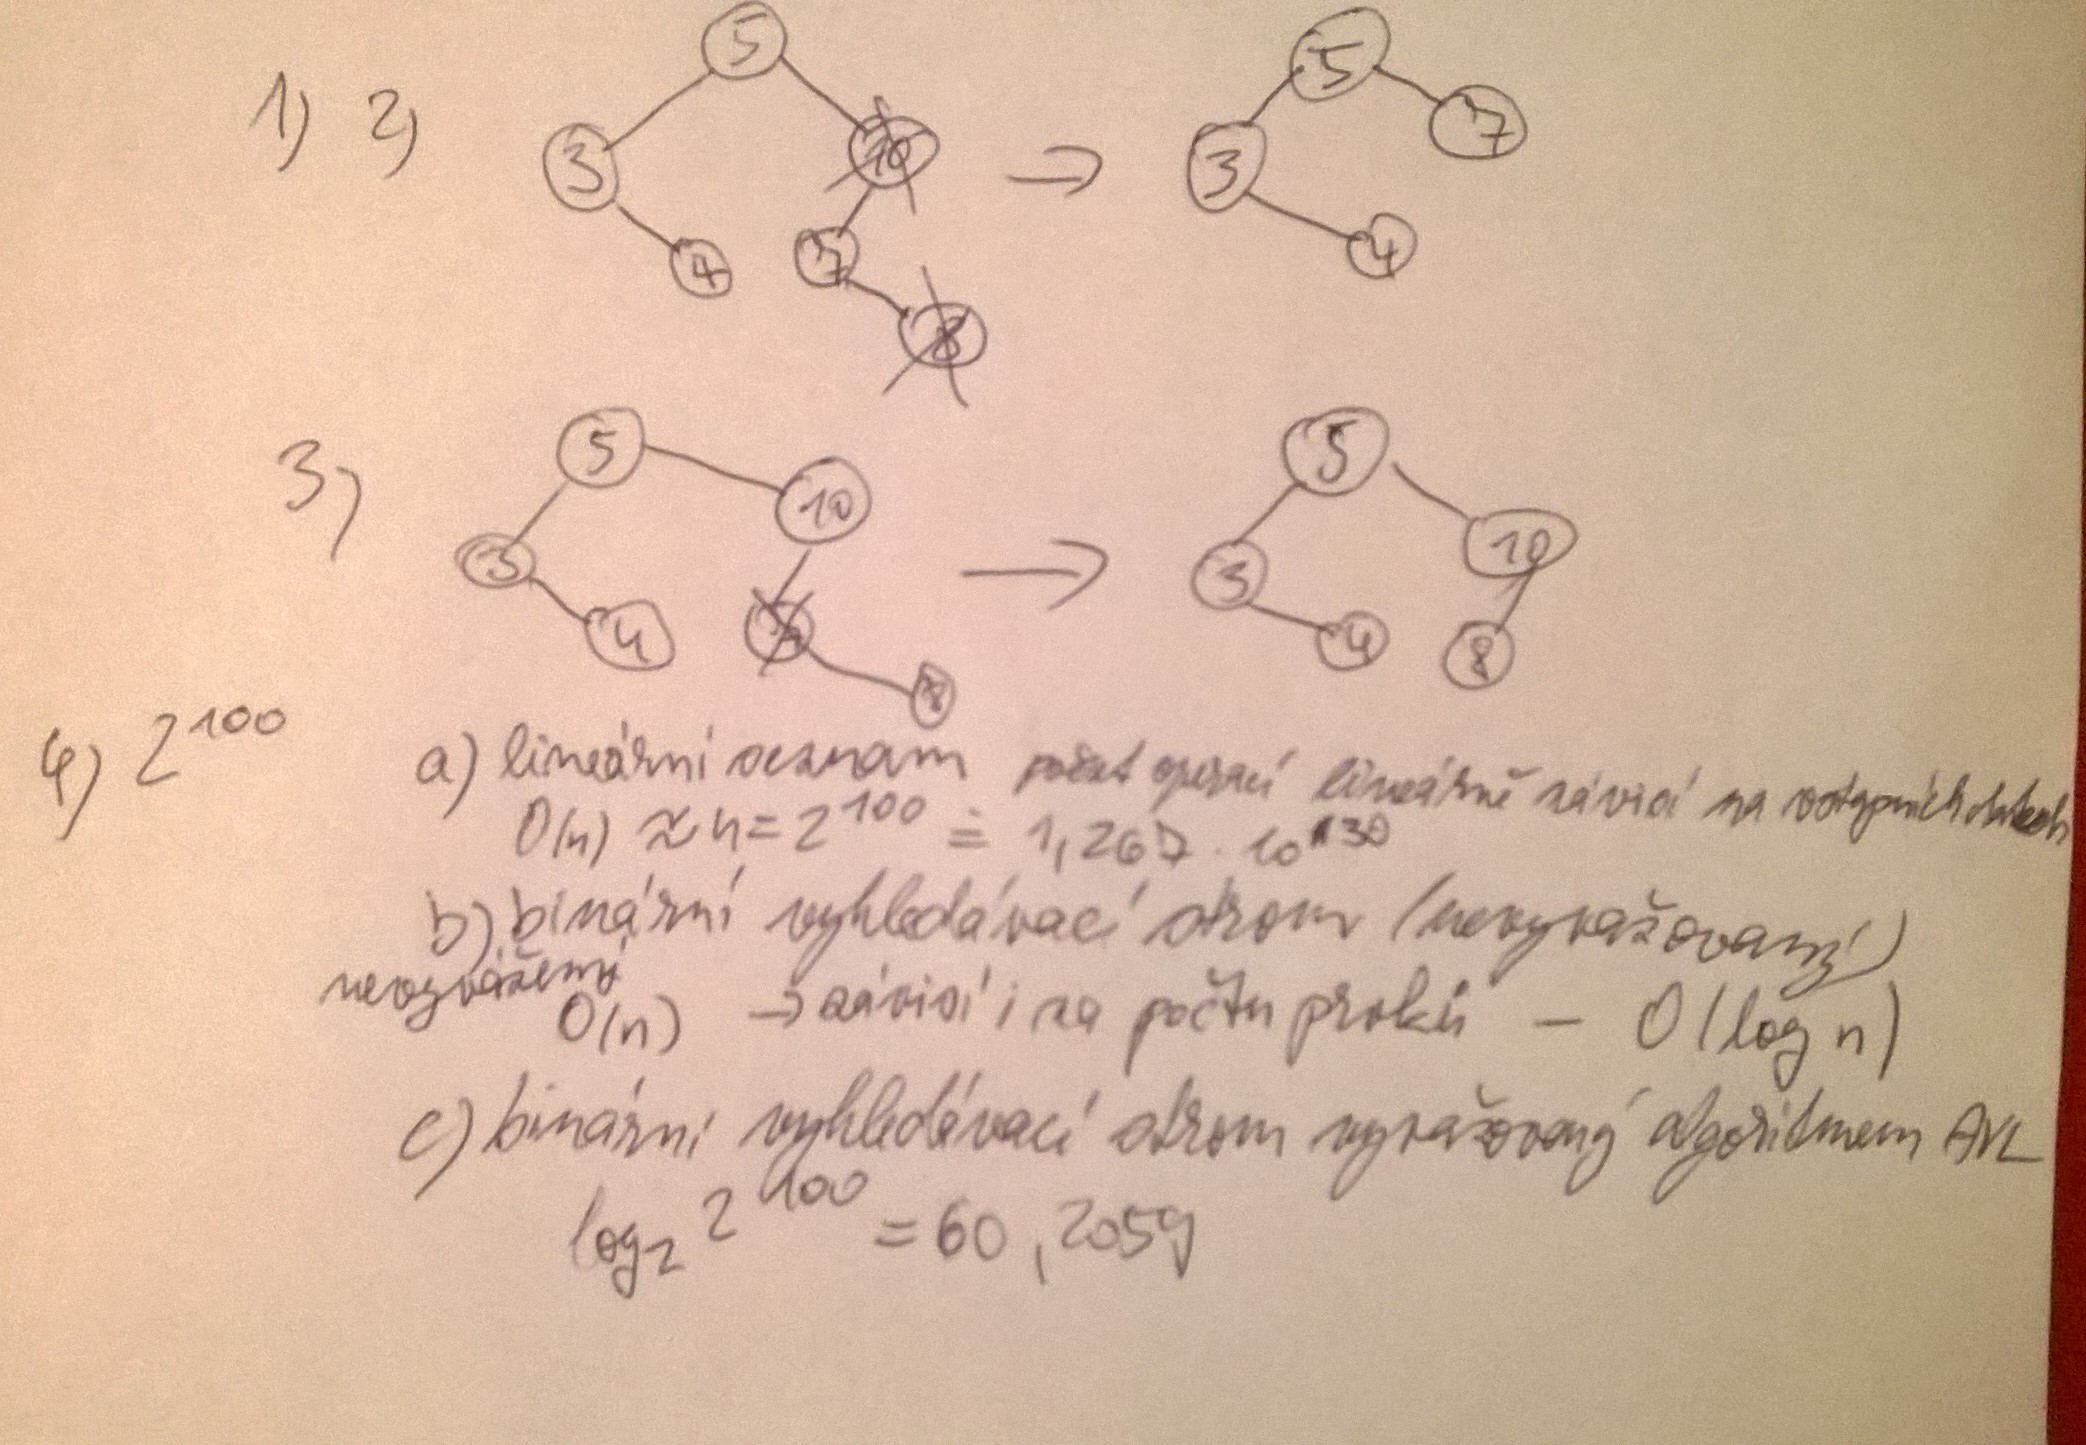 1) 2)
5
3
10
4
7
8
→
5
3
7
4
3)
5
10
3
4
7
8
→
5
3
10
4
8
4) 2^100
a) lineární seznam počet operací lineárně závisí na vstupních datech
O(n) ≈ n = 2^100 ≐ 1,267 · 10^30
b) binární vyhledávací strom (nevyvažovaný)
nevyvážený
O(n) → závisí i na počtu prvků – O(log n)
c) binární vyhledávací strom vyvažovaný algoritmem AVL
log₂ 2^100 = 60,2059